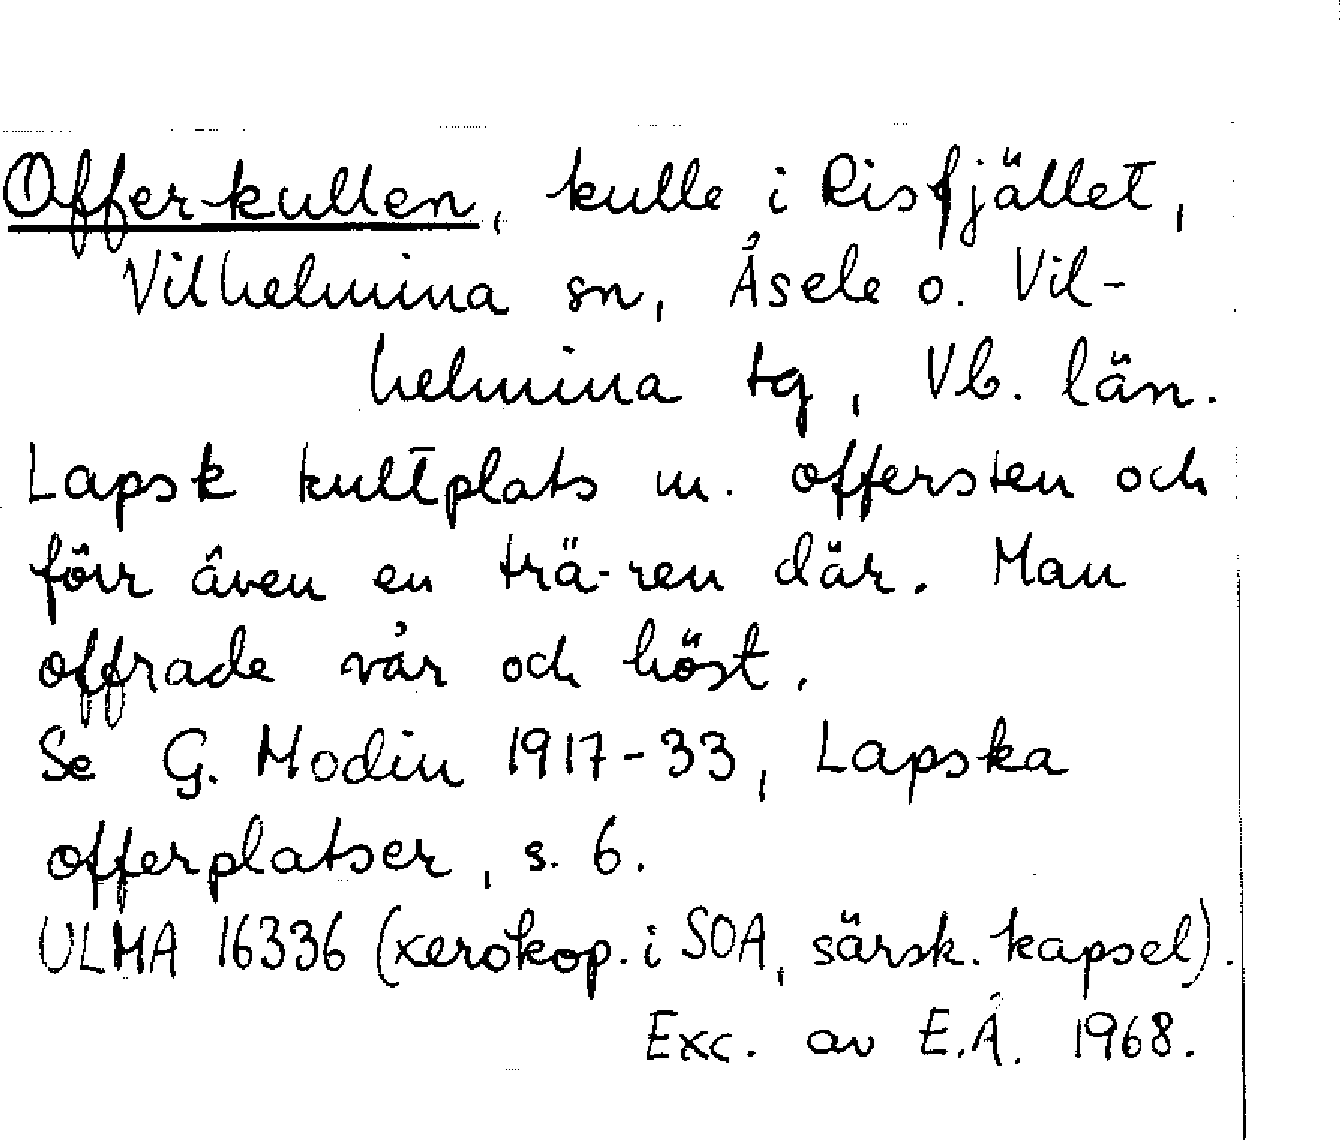 Offerkullen, kulle i Risfjället,
Vilhelmina sn, Åsele o. Vil-
helmina tg, Vb. län.
Lapsk kultplats m. offersten och
förr även en trä-ren där. Man
offrade vår och höst.
Se G. Modin 1917-33, Lapska
offerplatser, s. 6.
ULMA 16336 (xerokop. i SOA, särsk. kapsel).
Exc. av E.Å. 1968.